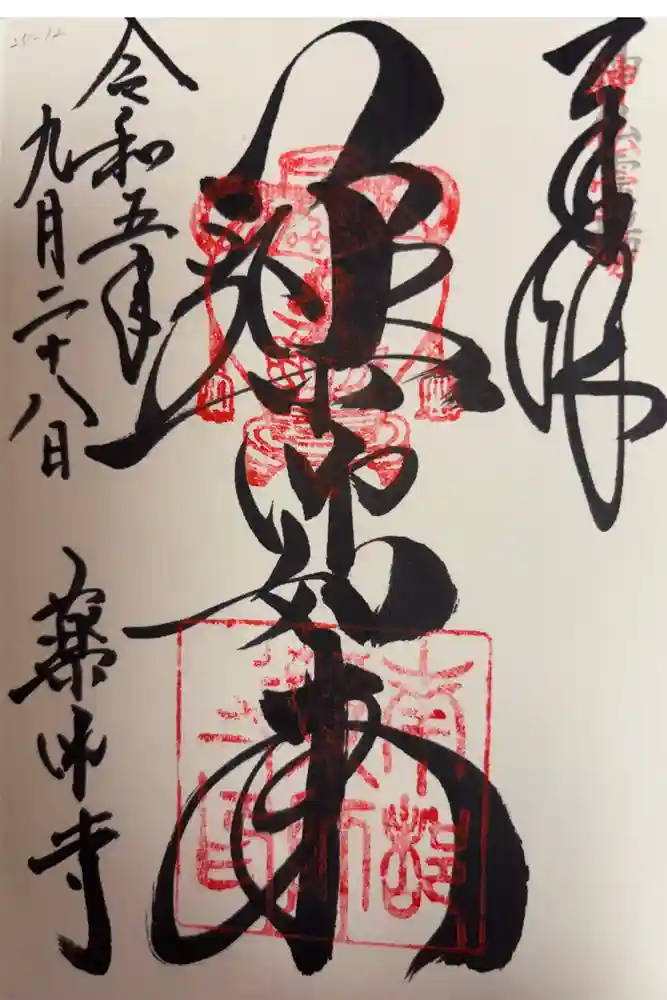 奉拝
薬師如来
令和五年
九月二十八日
薬師寺
25-12